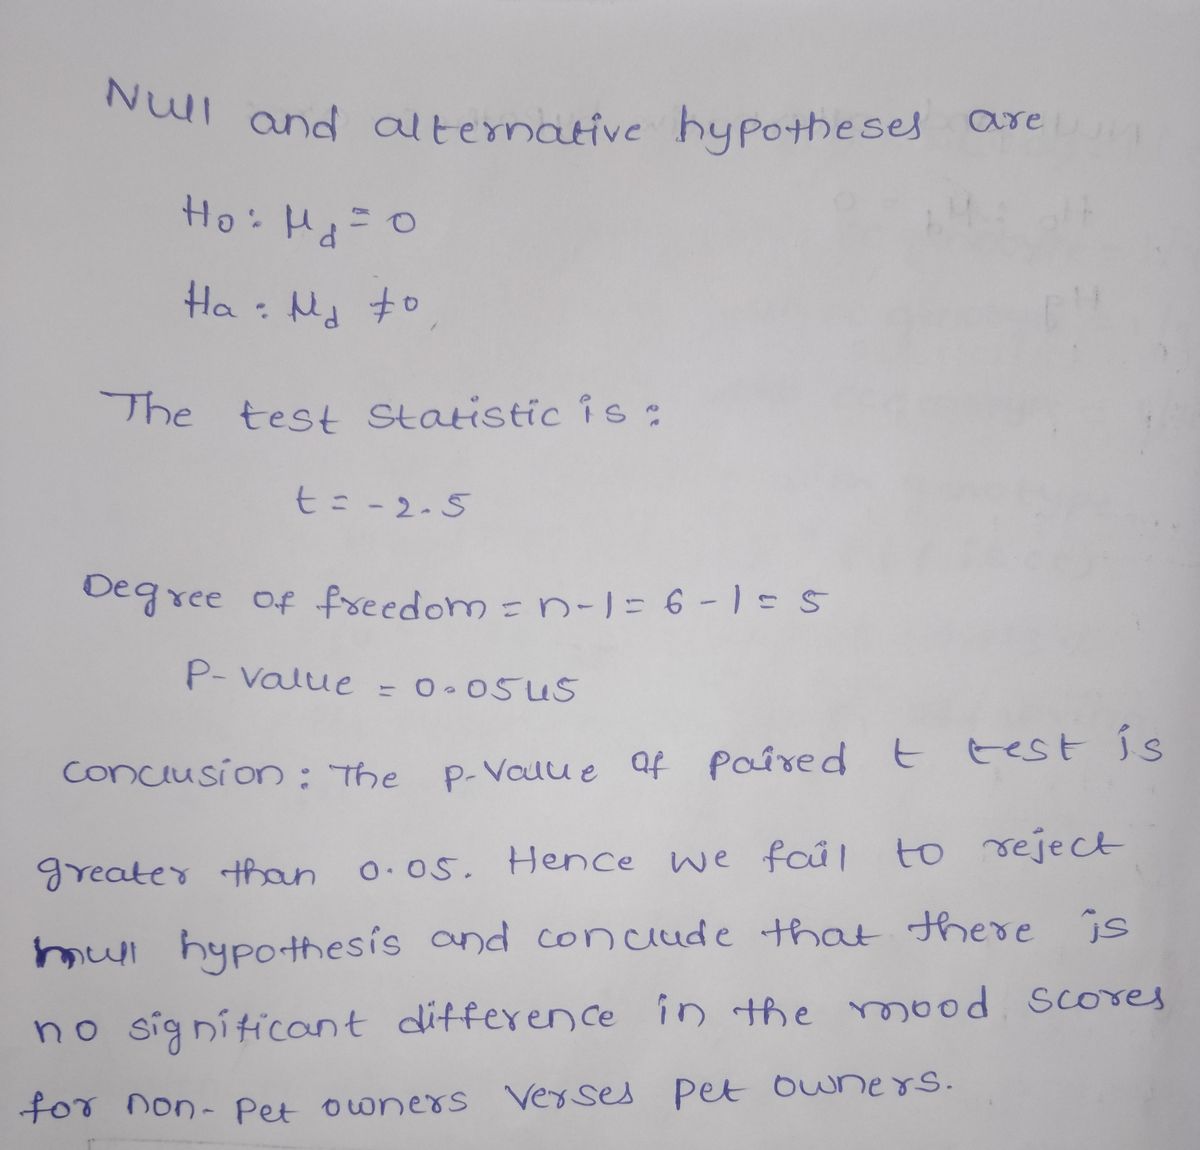 Null and alternative hypotheses are
Ho: μd = 0
Ha: μd ≠ 0,
The test statistic is:
t = -2.5
Degree of freedom = n-1 = 6-1 = 5
P-Value = 0.0545
conclusion: The p-Value of paired t test is
greater than 0.05. Hence we fail to reject
null hypothesis and conclude that there is
no significant difference in the mood scores
for non-pet owners Verses pet owners.